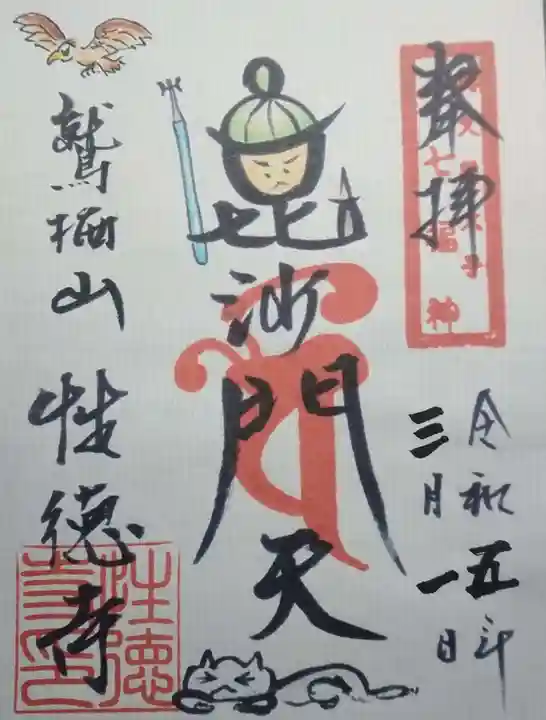 奉拝
七福神
令和五年
三月一日
毘沙門天
鷲栖山 性徳寺
性徳寺印